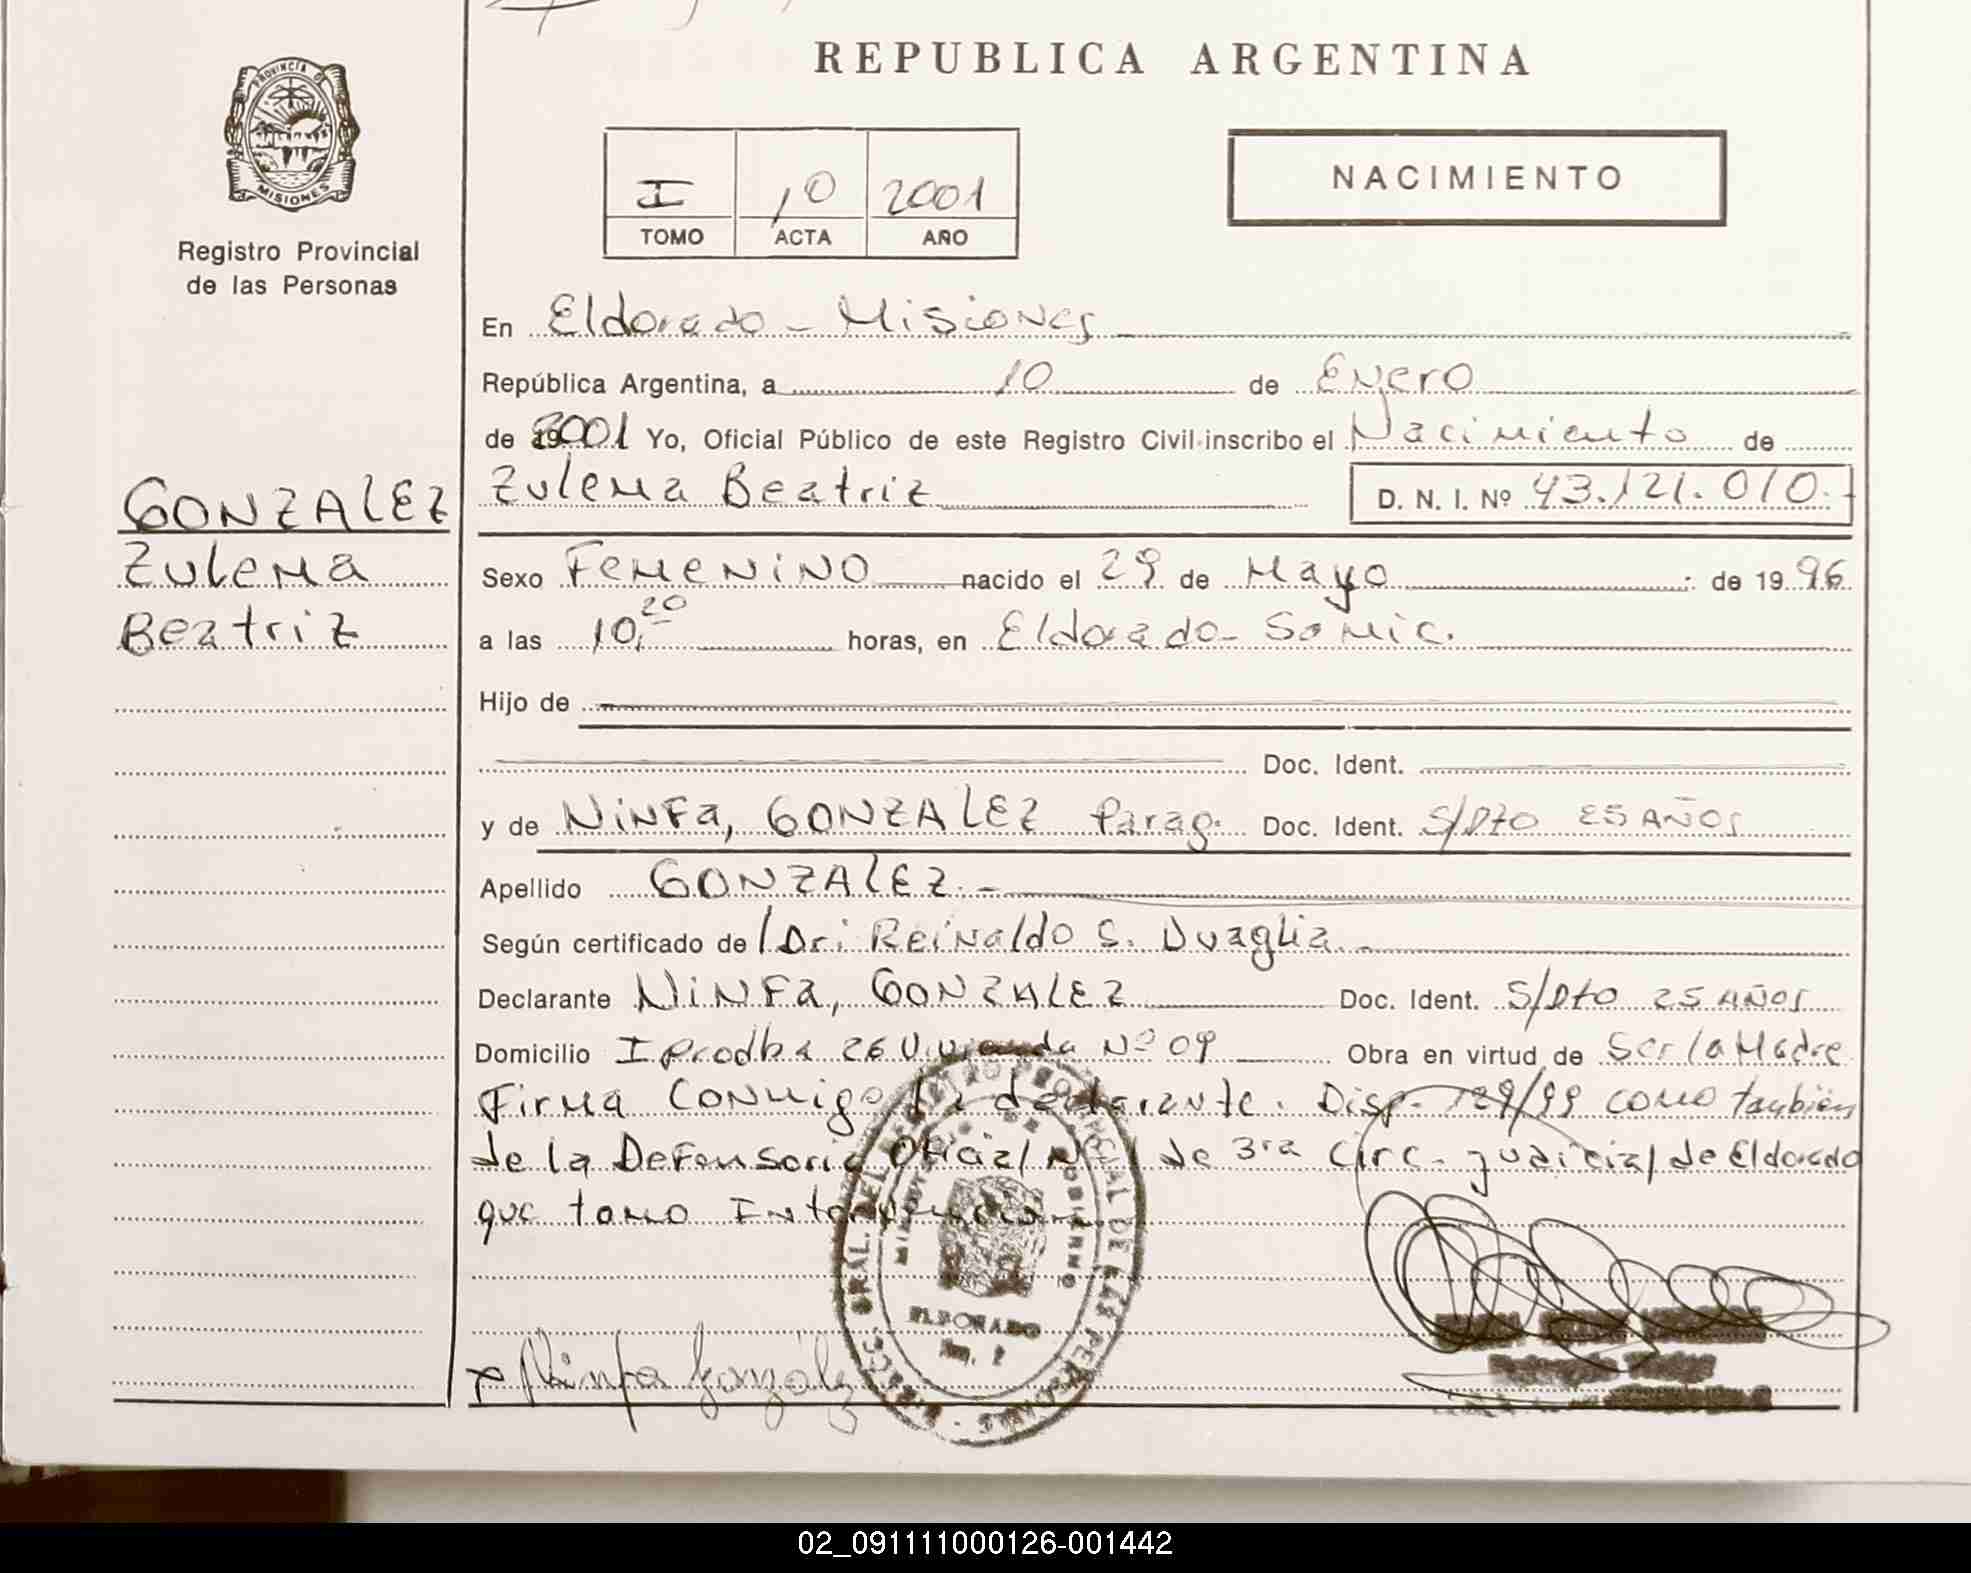 REPUBLICA ARGENTINA
PROVINCIA DE
MISIONES
Registro Provincial
de las Personas
I 10 2001
TOMO ACTA AÑO
NACIMIENTO
En Eldorado - Misiones
República Argentina, a 10 de Enero
de 2001 Yo, Oficial Público de este Registro Civil inscribo el Nacimiento de
Zulema Beatriz D. N. I. Nº 43.121.010.-
GONZALEZ
Zulema
Beatriz
Sexo Femenino nacido el 29 de Mayo de 1996
a las 10,20 horas, en Eldorado - Samic.
Hijo de
Doc. Ident.
y de Ninfa, GONZALEZ Parag. Doc. Ident. S/Dto 25 AÑOS
Apellido GONZALEZ.-
Según certificado de Reinaldo S.
Declarante Ninfa, GONZALEZ Doc. Ident. S/Dto 25 AÑOS
Domicilio Iprodha 26 Vivienda Nº 09 Obra en virtud de Ser la Madre
Firma Conmigo la declarante. Disp. 129/99 como también
de la Defensoria Oficial de 3ra Circ. Judicial de Eldorado
que tomo Intervencion
DIREC. GRAL. DEL REGISTRO PROVINCIAL DE LAS PERSONAS
MINISTERIO DE GOBIERNO
ELDORADO
x Ninfa González
02_091111000126-001442